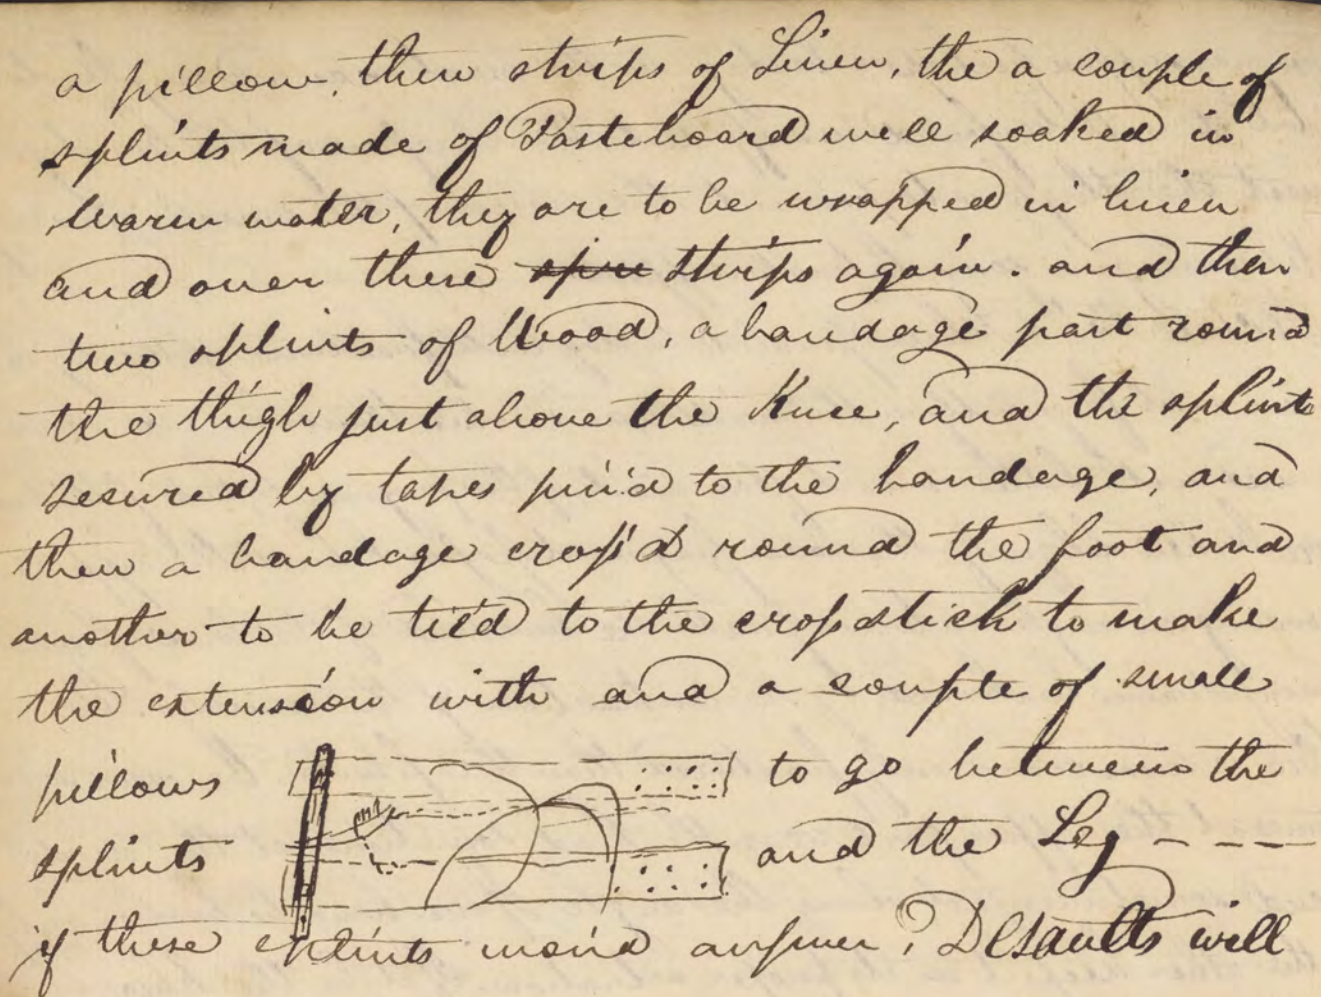 a pillow, then strips of Linen, the a couple of
splints made of Pasteboard well soaked in
warm water, they are to be wrapped in linen
and over these spli strips again. and then
two splints of Wood, a bandage part round
the thigh just above the Knee, and the splints
secured by tapes pin'd to the bandage, and
then a bandage cross'd round the foot and
another to be tied to the cross stick to make
the extension with and a couple of small
pillows to go between the
splints and the Leg - - - -
if these splints wond answer, Desaults will